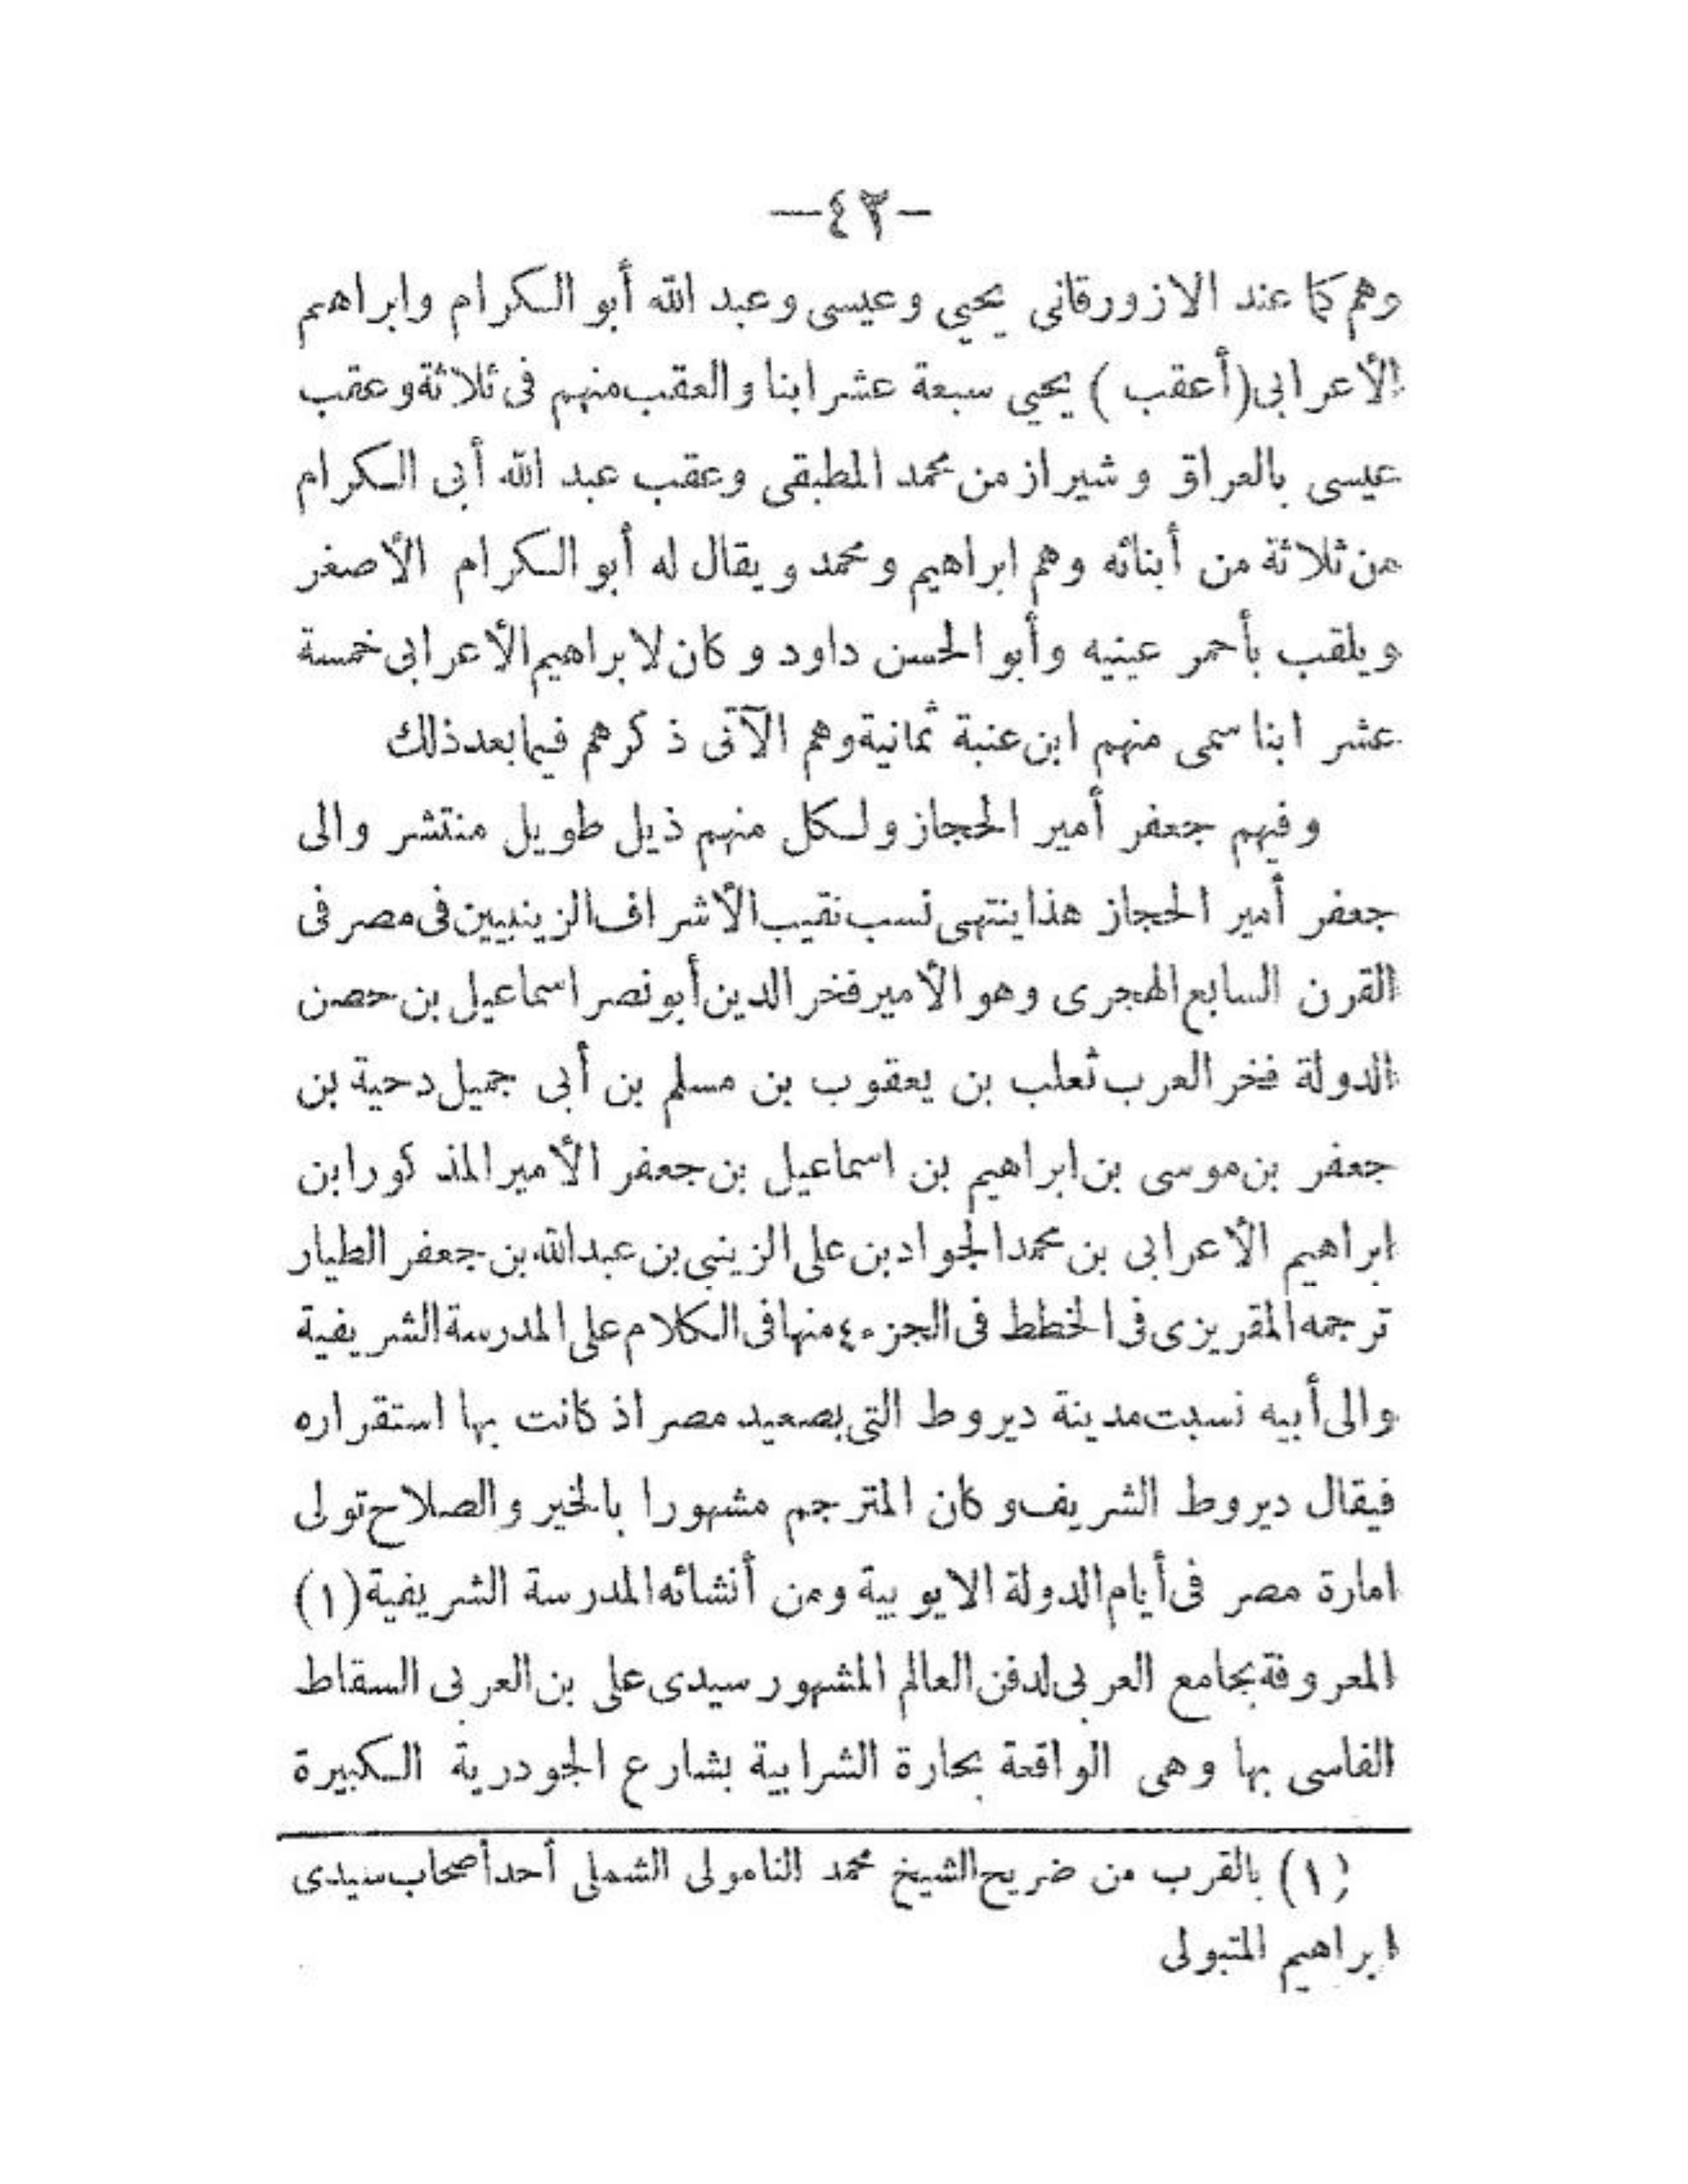 —٤٣—
وهم كما عند الازورقانى يحيي وعيسى وعبد الله أبو الكرام وابراهيم
الأعرابى (أعقب) يحيي سبعة عشر ابنا والعقب منهم فى ثلاثة وعقب
عيسى بالعراق وشيراز من محمد المطبقى وعقب عبد الله أبى الكرام
من ثلاثة من أبنائه وهم ابراهيم ومحمد ويقال له أبو الكرام الأصغر
ويلقب بأحمر عينيه وأبو الحسن داود وكان لابراهيم الأعرابى خمسة
عشر ابنا سمى منهم ابن عنبة ثمانية وهم الآتى ذكرهم فيما بعد ذلك
وفيهم جعفر أمير الحجاز ولكل منهم ذيل طويل منتشر والى
جعفر أمير الحجاز هذا ينتهى نسب نقيب الأشراف الزينبيين فى مصر فى
القرن السابع الهجرى وهو الأمير فخر الدين أبو نصر اسماعيل بن حصن
الدولة فخر العرب ثعلب بن يعقوب بن مسلم بن أبى جميل دحية بن
جعفر بن موسى بن ابراهيم بن اسماعيل بن جعفر الأمير المذكور ابن
ابراهيم الأعرابى بن محمد الجواد بن على الزينبى بن عبد الله بن جعفر الطيار
ترجمه المقريزى فى الخطط فى الجزء ٤ منها فى الكلام على المدرسة الشريفية
والى أبيه نسبت مدينة ديروط التى بصعيد مصر اذ كانت بها استقراره
فيقال ديروط الشريف وكان المترجم مشهورا بالخير والصلاح تولى
امارة مصر فى أيام الدولة الايوبية ومن أنشائه المدرسة الشريفية (١)
المعروفة بجامع العربى لدفن العالم المشهور سيدى على بن العربى السقاط
الفاسى بها وهى الواقعة بحارة الشرابية بشارع الجودرية الكبيرة
(١) بالقرب من ضريح الشيخ محمد النامولى الشملى أحد أصحاب سيدى
ابراهيم المتبولى